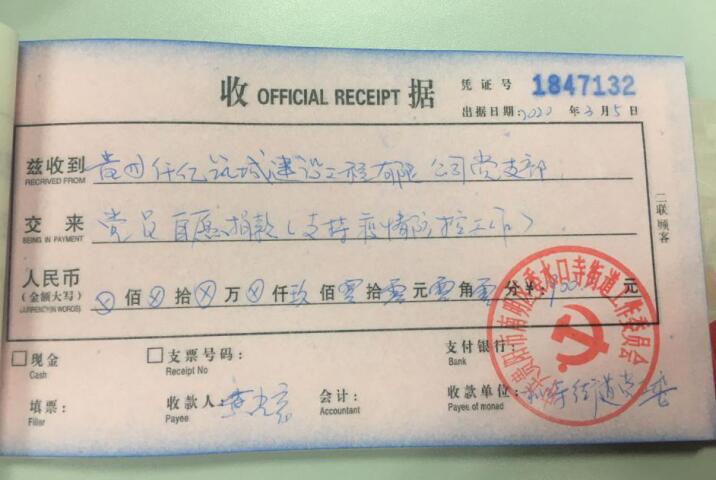 收 OFFICIAL RECEIPT 据
凭证号 1847132
出据日期: 2020 年 3 月 5 日
兹收到 贵州仟亿筑城建设工程有限公司党支部
RECRIVED FROM
交来 党员自愿捐款(支持疫情防控工作)
BEING IN PAYMENT
人民币 ⊗ 佰 ⊗ 拾 ⊗ 万 ⊗ 仟 玖 佰 零 拾 零 元 零 角 零 分 ¥: 900 元
(金额大写)
(CURRENCY IN WORDS)
二联顾客
□现金 □支票号码: 支付银行:
Cash Receipt No Bank
填票: 收款人: 会计: 收款单位: 街道党工委
Filler Payee Accountant Payee of monad
贵阳市南明区委水口寺街道工作委员会